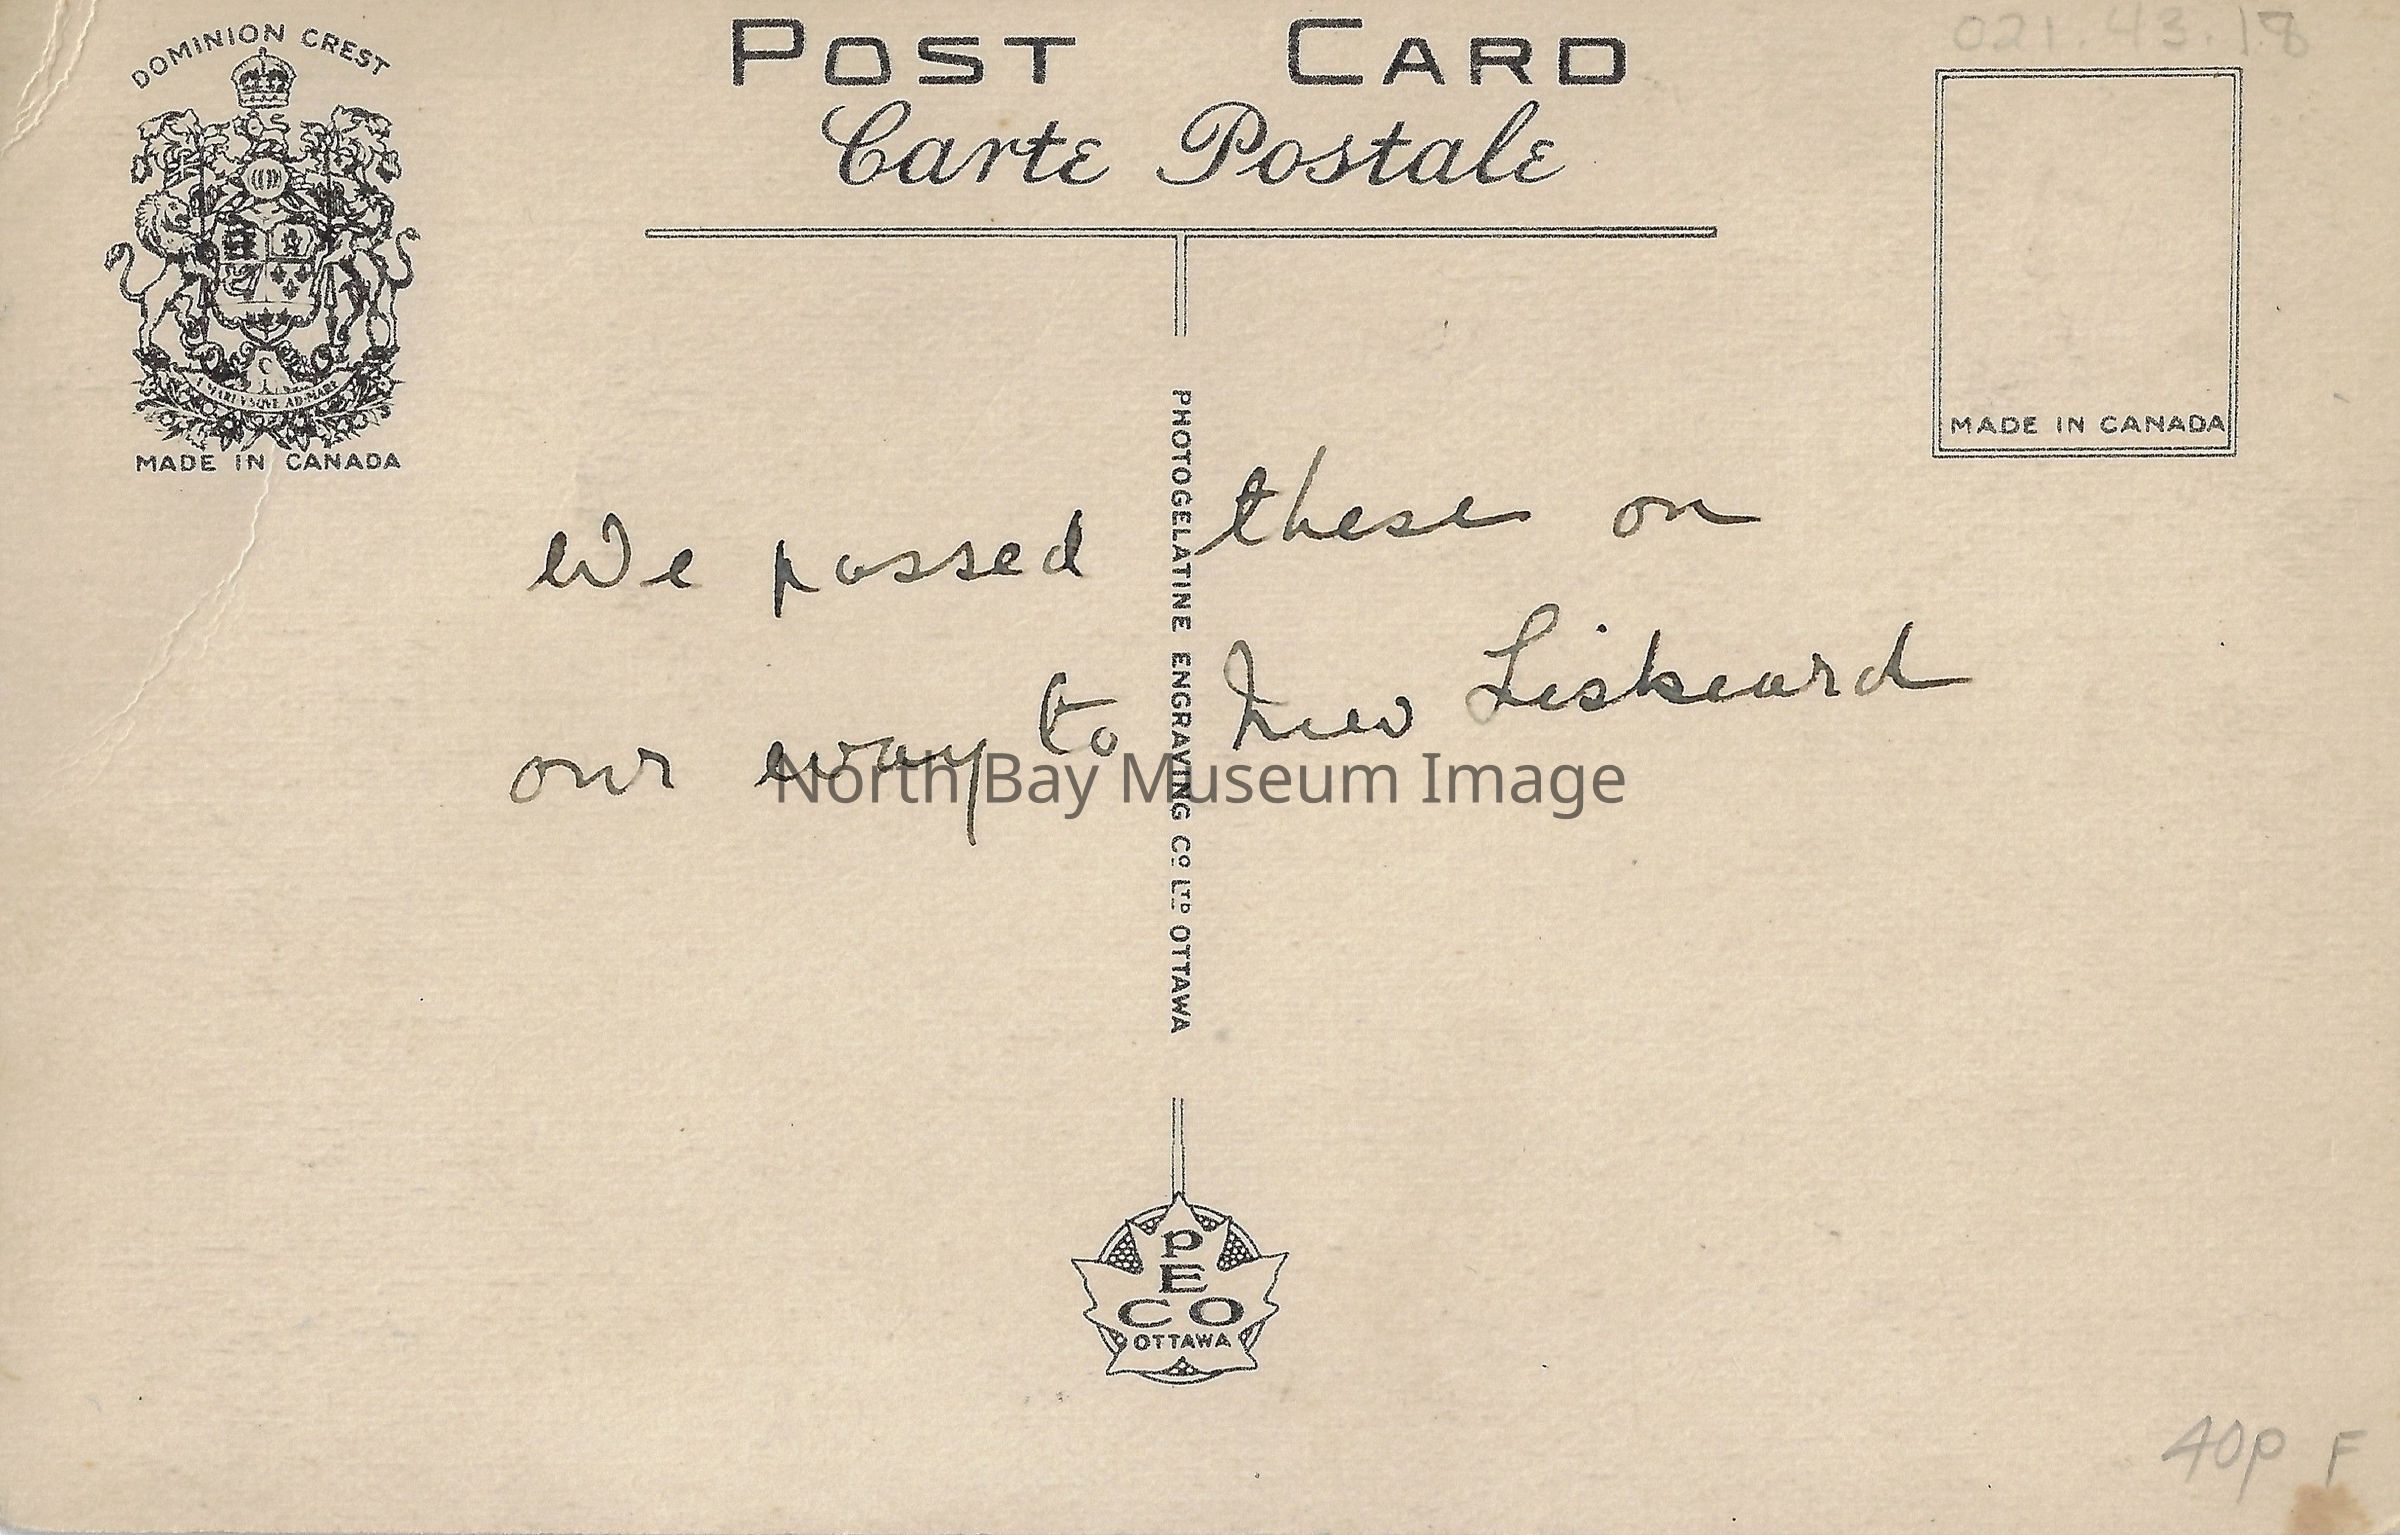 021.43.18
DOMINION CREST
POST CARD
Carte Postale
A MARI VSQVE AD MARE
MADE IN CANADA
MADE IN CANADA
We passed these on
our way to New Liskeard
PHOTOGELATINE ENGRAVING CO LTD OTTAWA
North Bay Museum Image
P
E
CO
OTTAWA
40p F